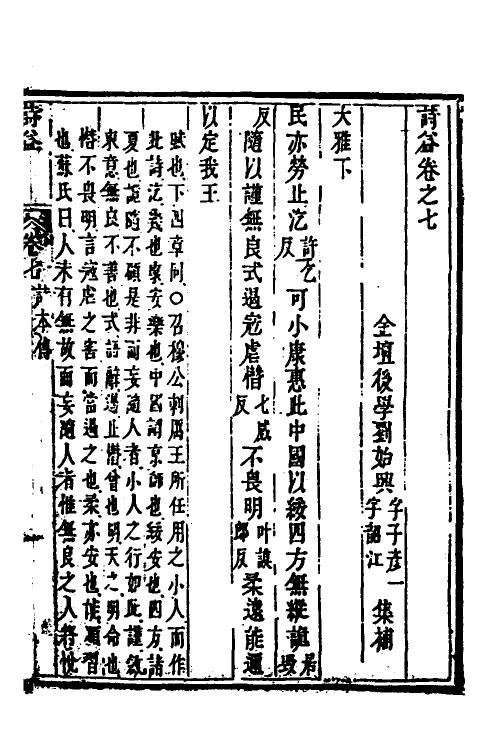 詩益卷之七
金壇後學劉始興字子彥一字韶江集補
大雅下
民亦勞止汔許乞反可小康惠此中國以綏四方無縱詭居毀
反隨以謹無良式遏寇虐憯七感反不畏明叶謨郎反柔遠能邇
以定我王
賦也下四章同○召穆公刺厲王所任用之小人而作
此詩汔幾也康安樂也中國謂京師也綏安也四方諸
夏也詭隨不顧是非而妄隨人者小人之行如此謹斂
束意無良不善也式語辭遏止憯曾也明天之明命也
憯不畏明言寇虐之害而當遏之也柔亦安也能順習
也蘇氏曰人未有無故而妄隨人者惟無良之人將悅
詩益
卷七 詩本傳